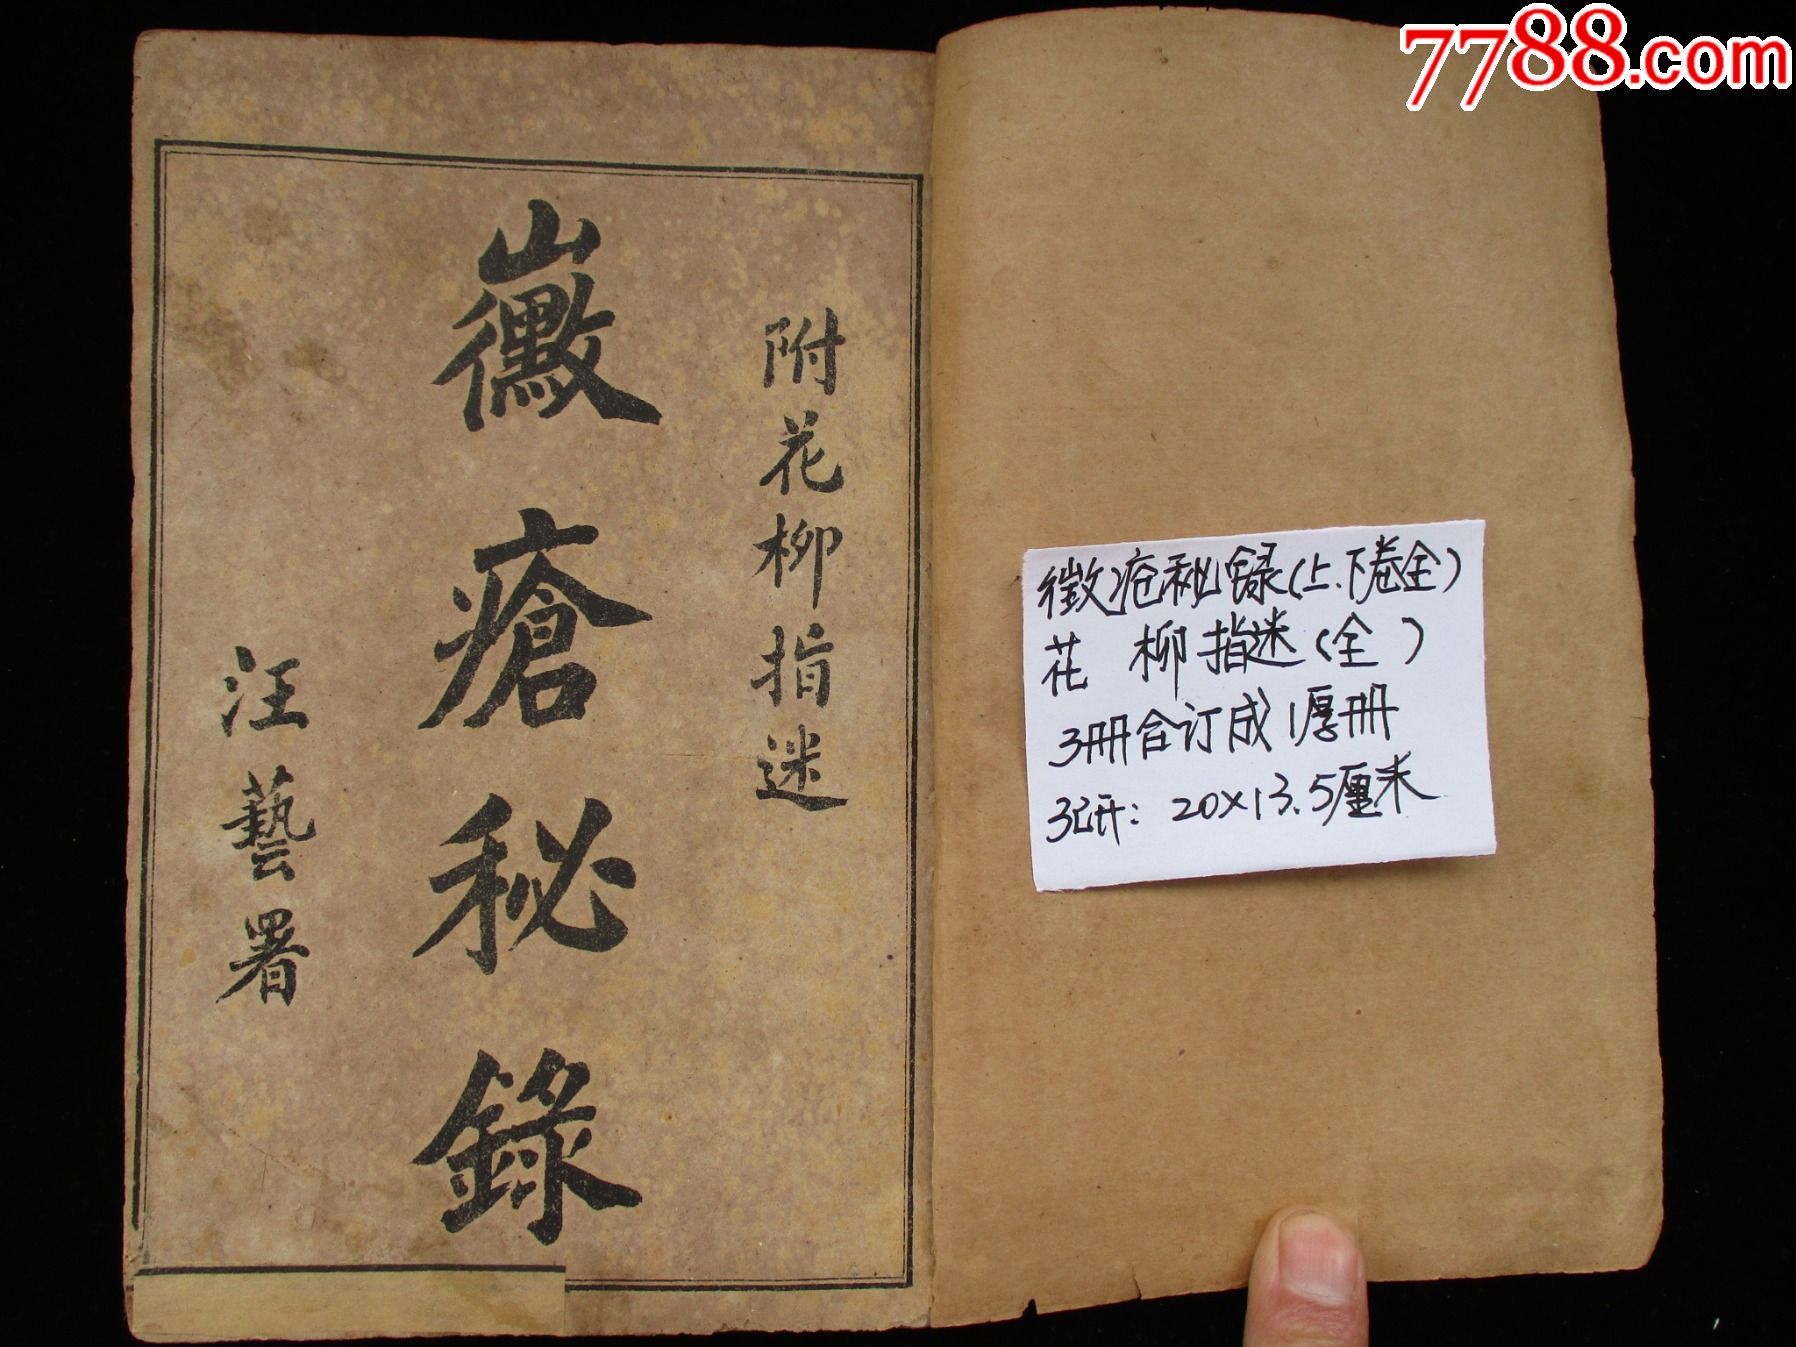 7788.com
附花柳指迷
黴瘡秘錄
汪藝署
徵疮秘錄(上.下卷全)
花 柳指迷(全)
3册合订成1厚册
32开: 20×13.5厘米